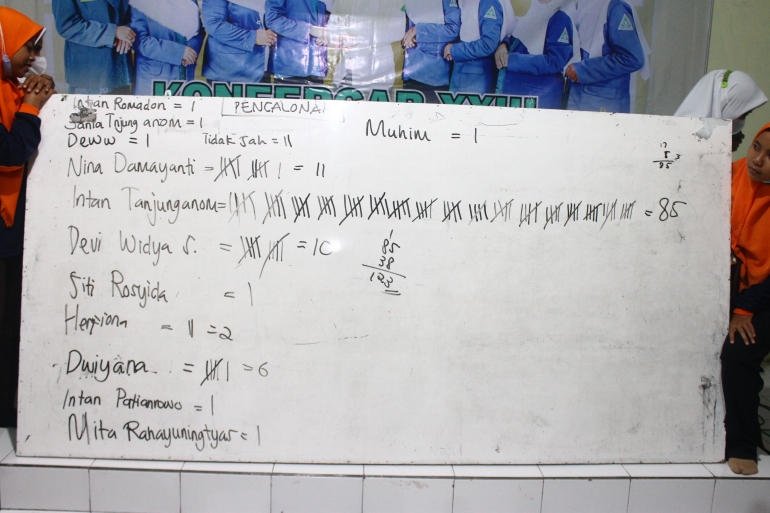 KONFERCAB XXIII
Intan Romadon = 1
PENCALONAN
Sania Tnjung anom = 1
Deww = 1
Tidak Sah = 11
Muhim = 1
17
5
85
Nina Damayanti = 11
Intan Tanjunganom = 85
Devi Widya S. = 10
85
38
123
Siti Rosyida = 1
= 2
Dwiyana = 6
Intan Patianrowo = 1
Mita Rahayuningtyas = 1